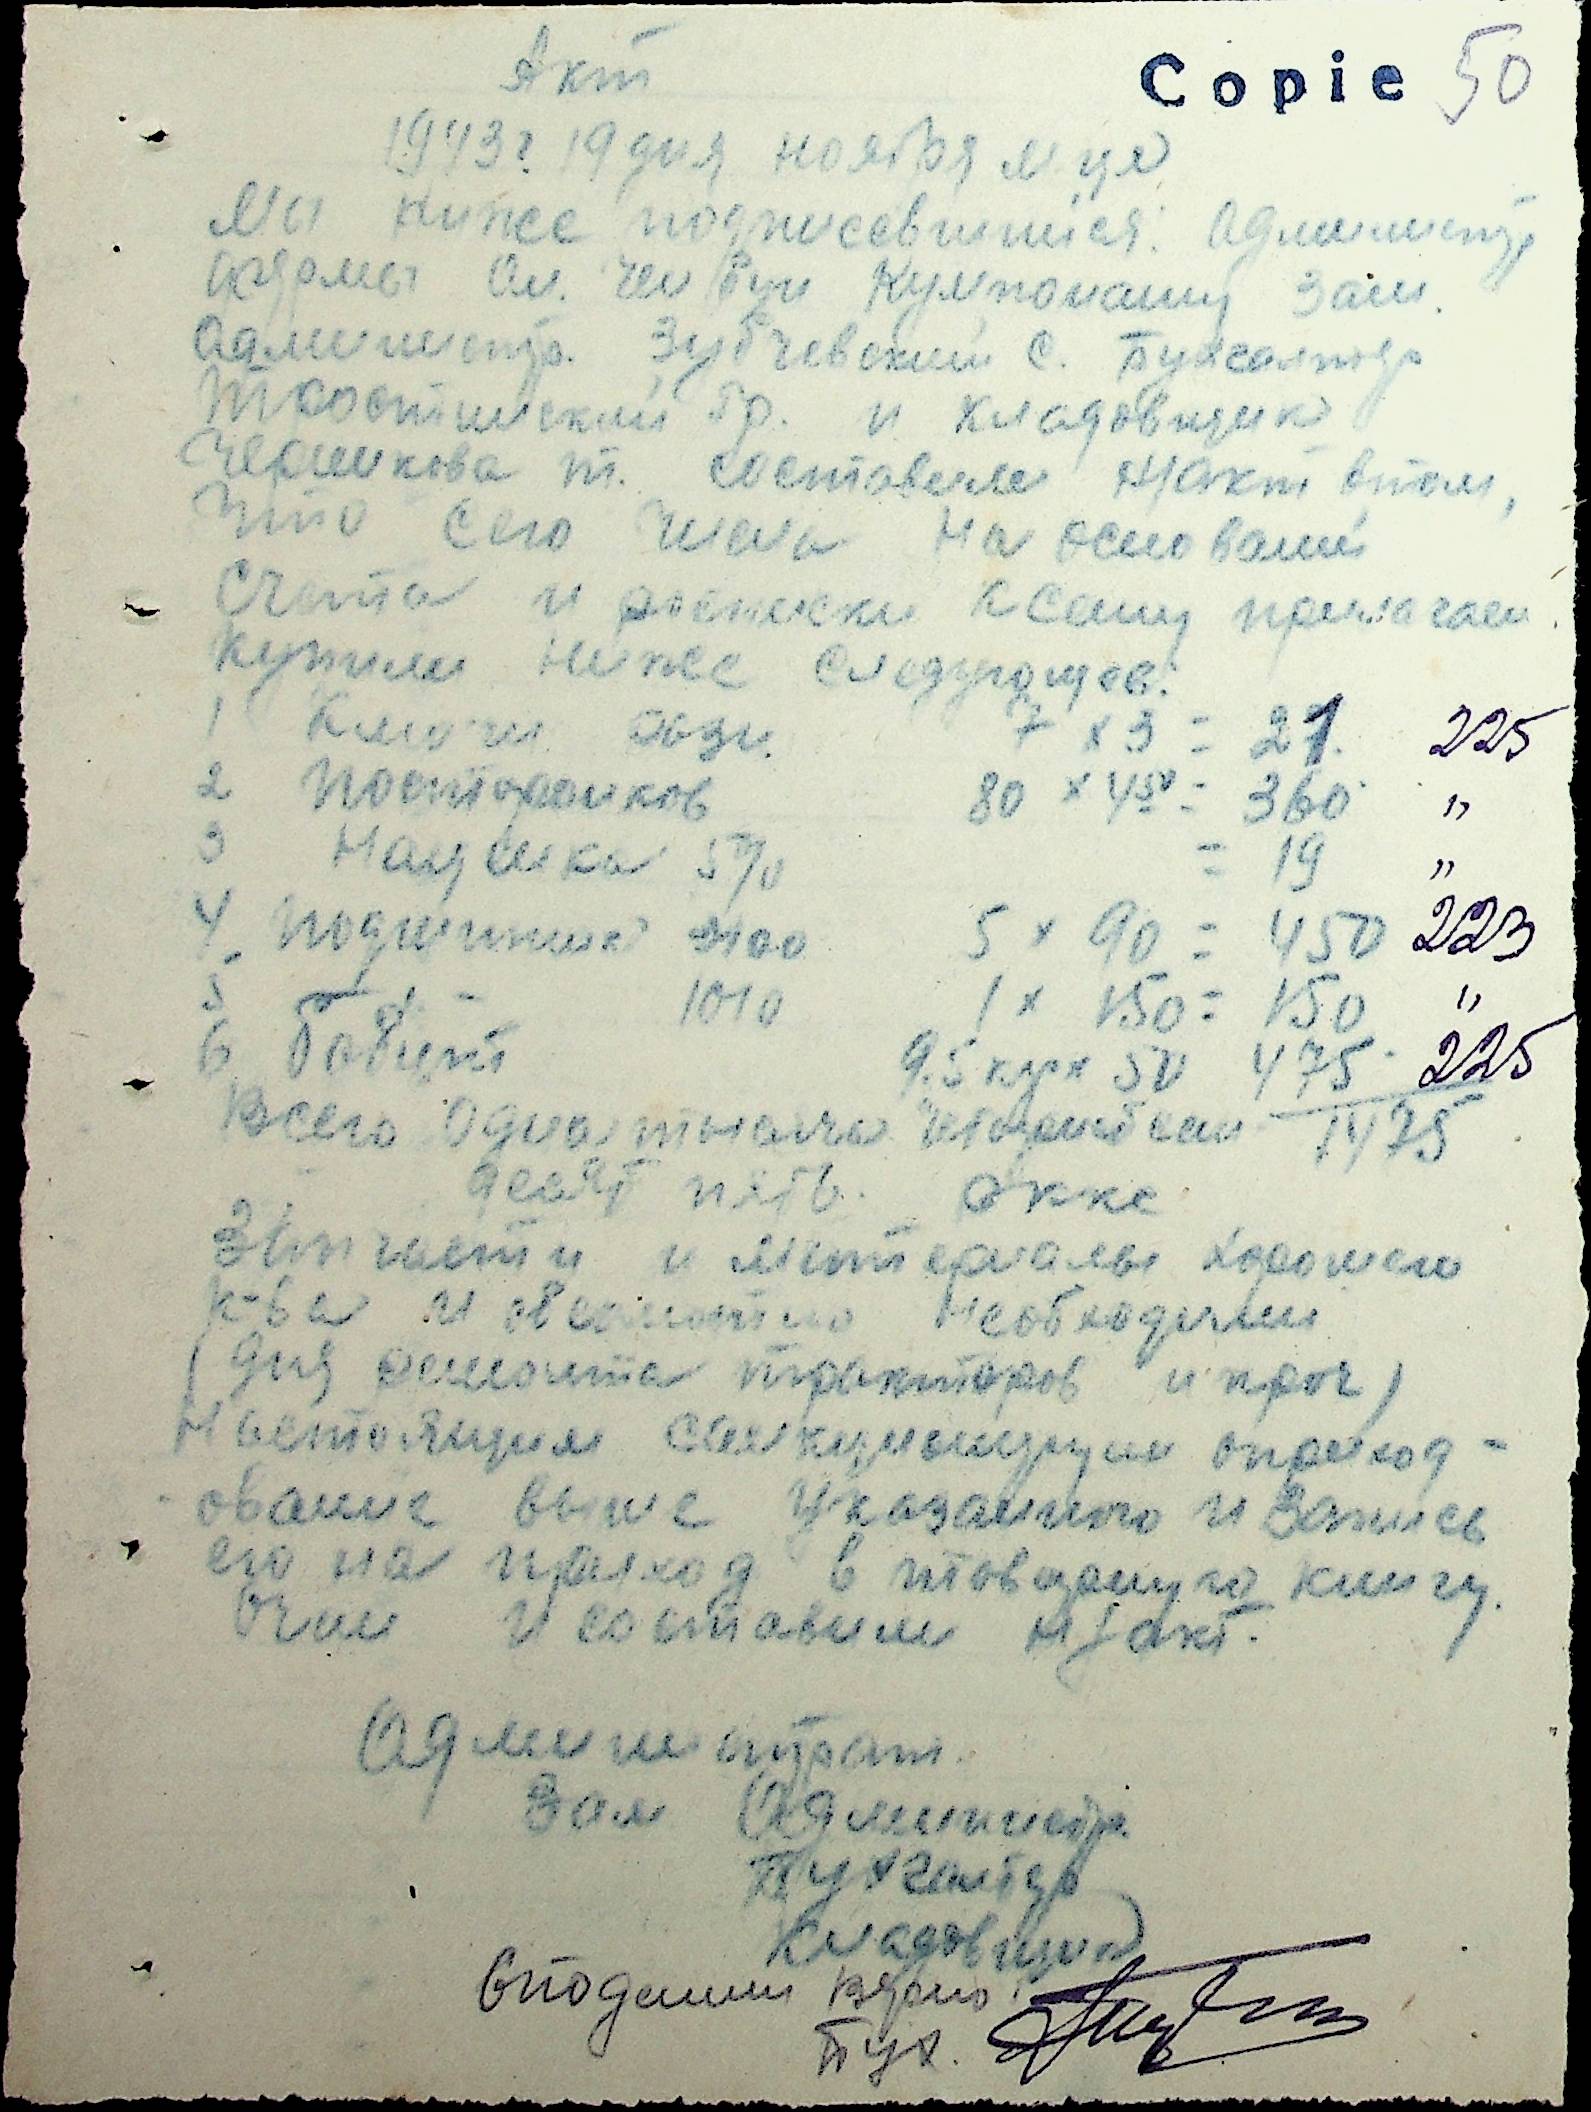 Акт
Copie 50
1943 г. 19 дня ноября м-ца
Мы ниже подписавшиися: Администр
фермы Ом. Кумпонашу Зам.
Администр. Зубчевский С. Бухгалтер
Тростинский Гр. и кладовщик
Черникова Т. составили н/акт втом,
что сего числа на основании
счета и росписки к сему прилагаем
купили ниже следующее:
1 Ключи 7 х 3 = 21. 225
2 Постороиков 80 х 4 50 = 360 "
3 Наценка 5% = 19 "
4 Подшипник 5 х 90 = 450 223
5 1010 1 х 150 = 150 "
6 Бабит 9.5 кг х 50 475 225
Всего Одна тысяча четыреста сем 1475
десят пять.
Запчасти и материалы хорошего
к-ва и необходимы
(для ремонта тракторов и проч)
Настоящим оприход-
ование выше указанного и запись
его на приход в книгу.
Очем и составили н/акт.
Администрат.
Зам Администр
Бухгалтер
Кладовщик
Споденим верно:
Бух.